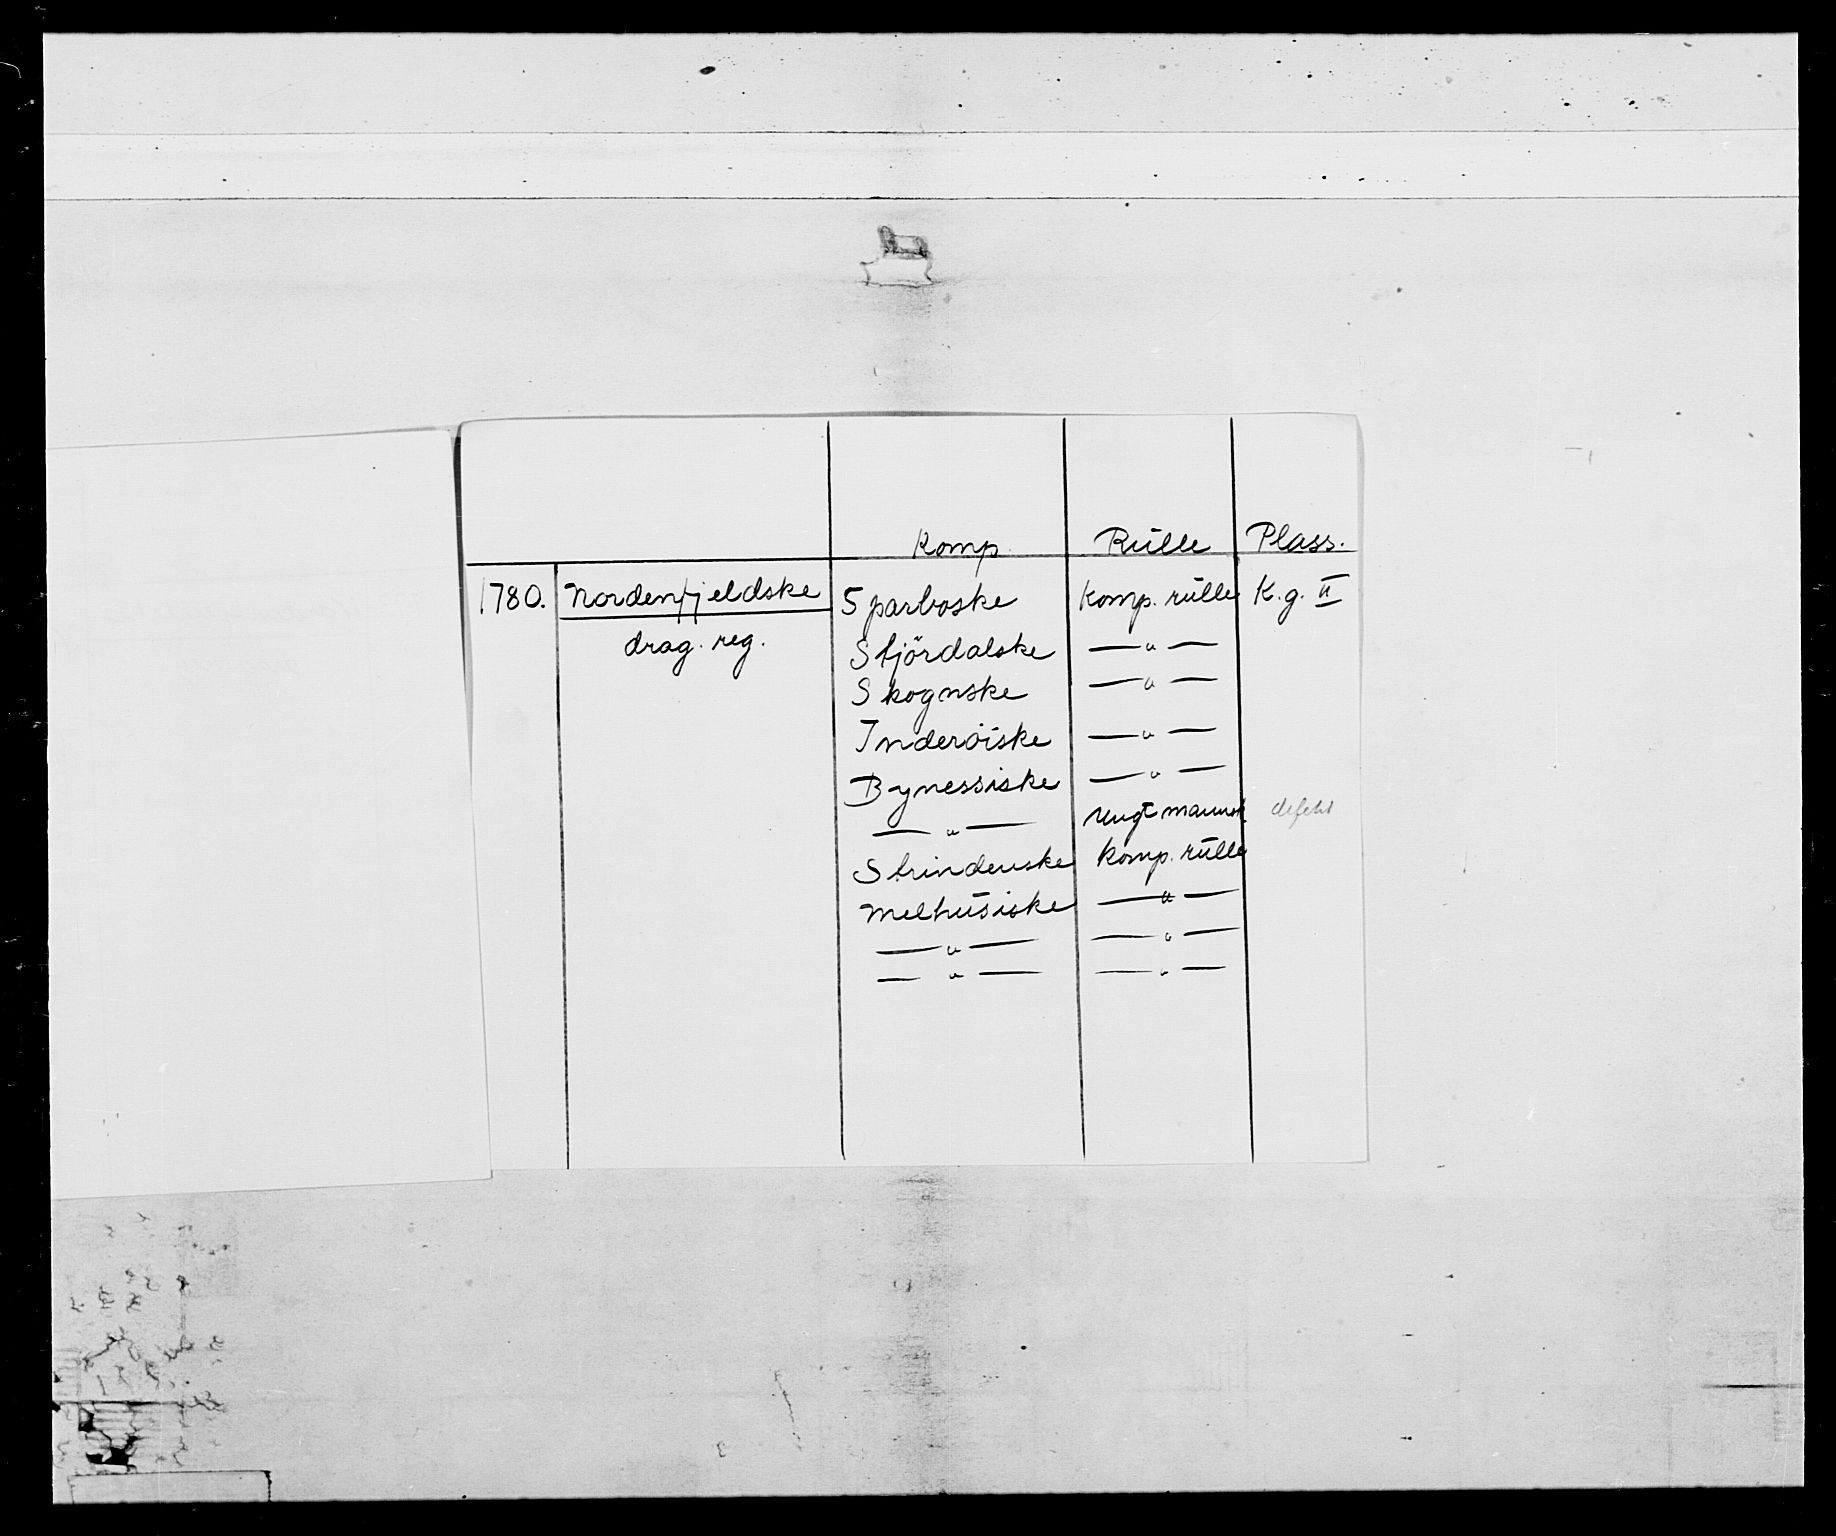 Komp. Rulle Plass.
1780. Nordenfjeldske Sparboske Komp. rulle K.g. II
drag. reg. Stjördalske —"—
Skognske —"—
Inderöiske —"—
Bynessiske —"—
—"— Ungt mannsk. defekt
Strindenske Komp. rulle
Melhusiske —"—
—"— —"—
—"— —"—